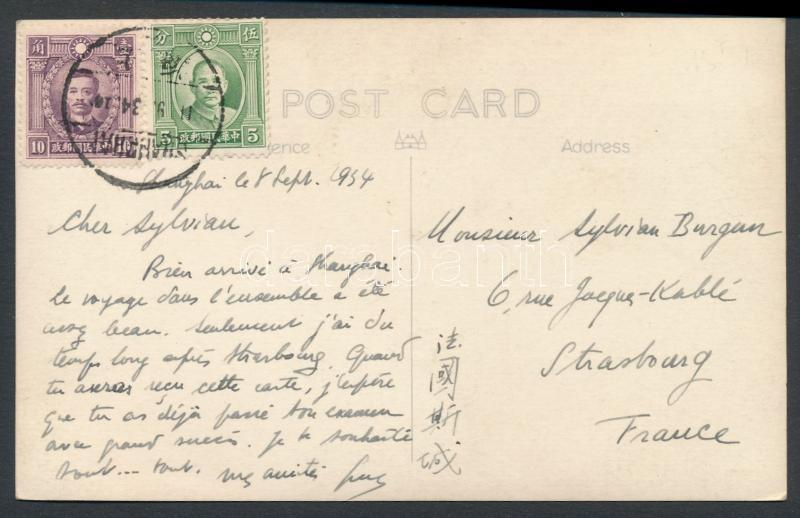 角 壹
10 中華民國郵政
分 伍
5 中華民國郵政 5
SHANGHAI
POST CARD
Address
Shanghai le 8 Sept. 1934
Cher Sylvian,
Bien arrivé à Shanghai.
Le voyage dans l'ensemble a été
assez beau. Seulement j'ai du
temps long après Strasbourg. Quand
tu auras reçu cette carte, j'espère
que tu as déjà passé ton examen
avec grand succès. Je te souhaite
tout... tout. mes amitiés
Monsieur Sylvian Burgun
6, rue Jacques-Kablé
Strasbourg
France
法國斯城
darabanth